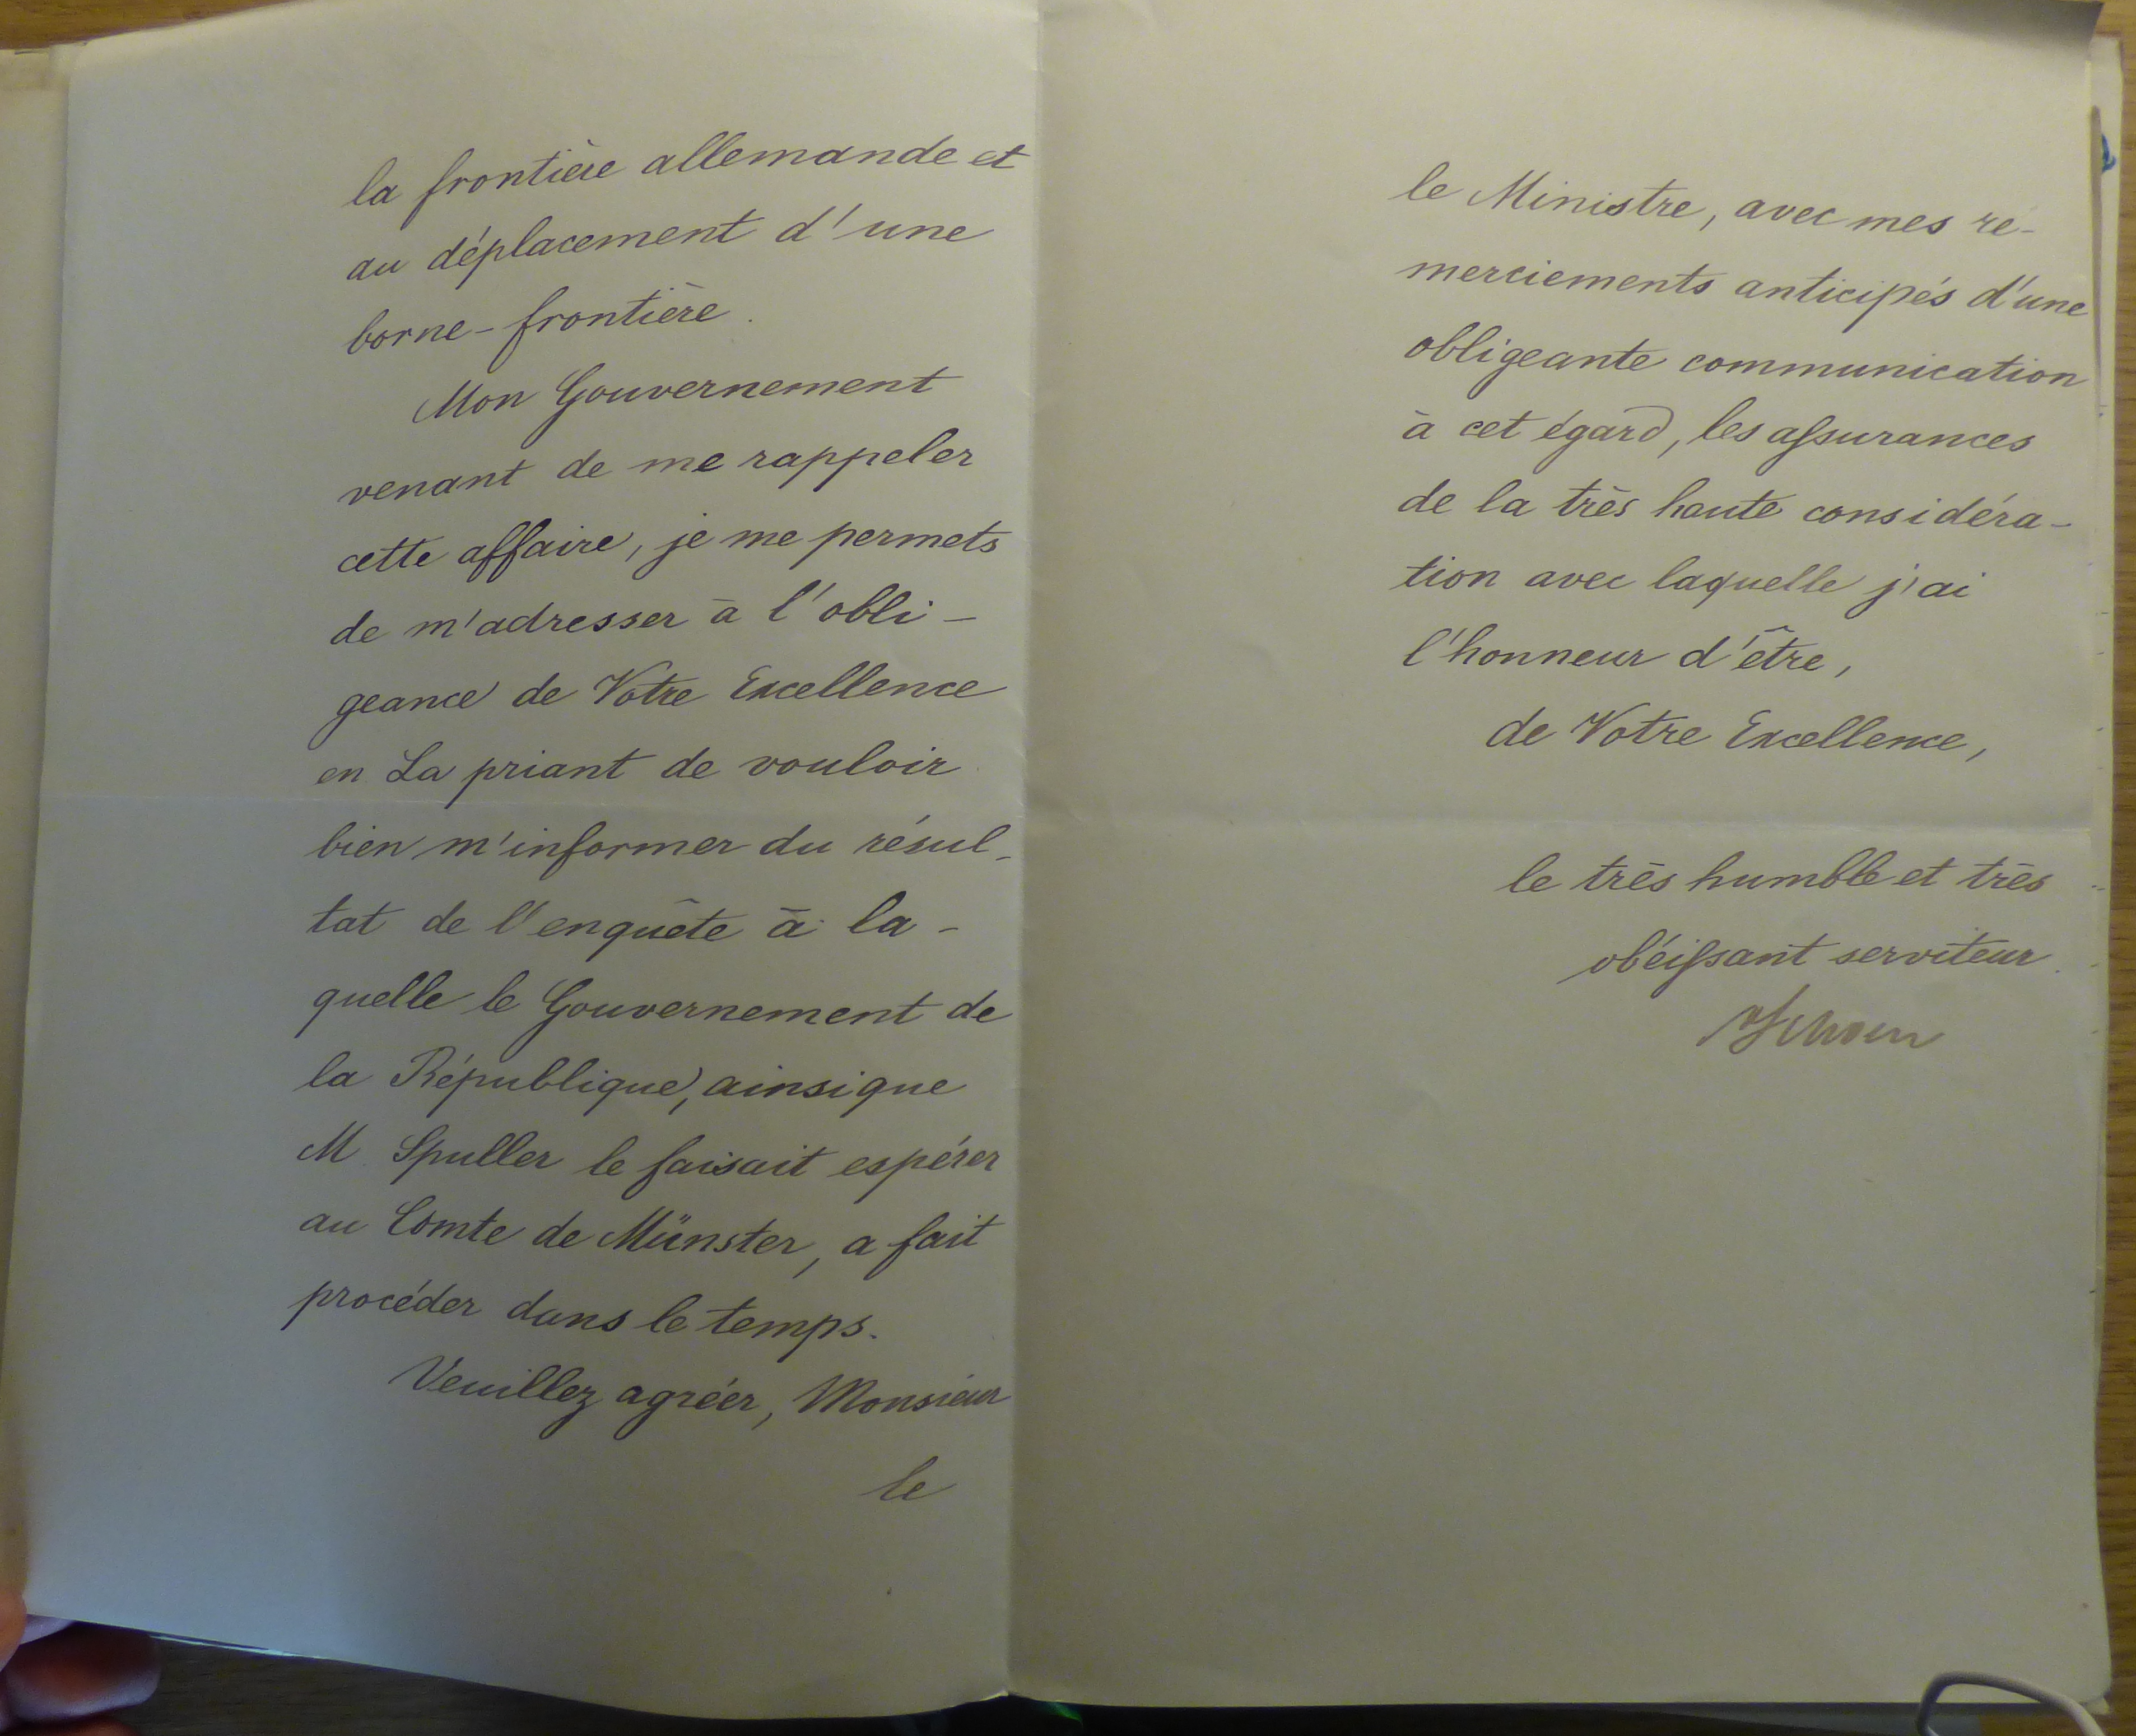 la frontière allemande et
au déplacement d'une
borne-frontière.
Mon Gouvernement
venant de me rappeler
cette affaire, je me permets
de m'adresser à l'obli-
geance de Votre Excellence
en La priant de vouloir
bien m'informer du résul-
tat de l'enquête à la-
quelle le Gouvernement de
la République, ainsi que
M. Spuller le faisait espérer
au Comte de Münster, a fait
procéder dans le temps.
Veuillez agréer, Monsieur
le
le Ministre, avec mes re-
merciements anticipés d'une
obligeante communication
à cet égard, les assurances
de la très haute considéra-
tion avec laquelle j'ai
l'honneur d'être,
de Votre Excellence,
le très humble et très
obéissant serviteur.
Schoen